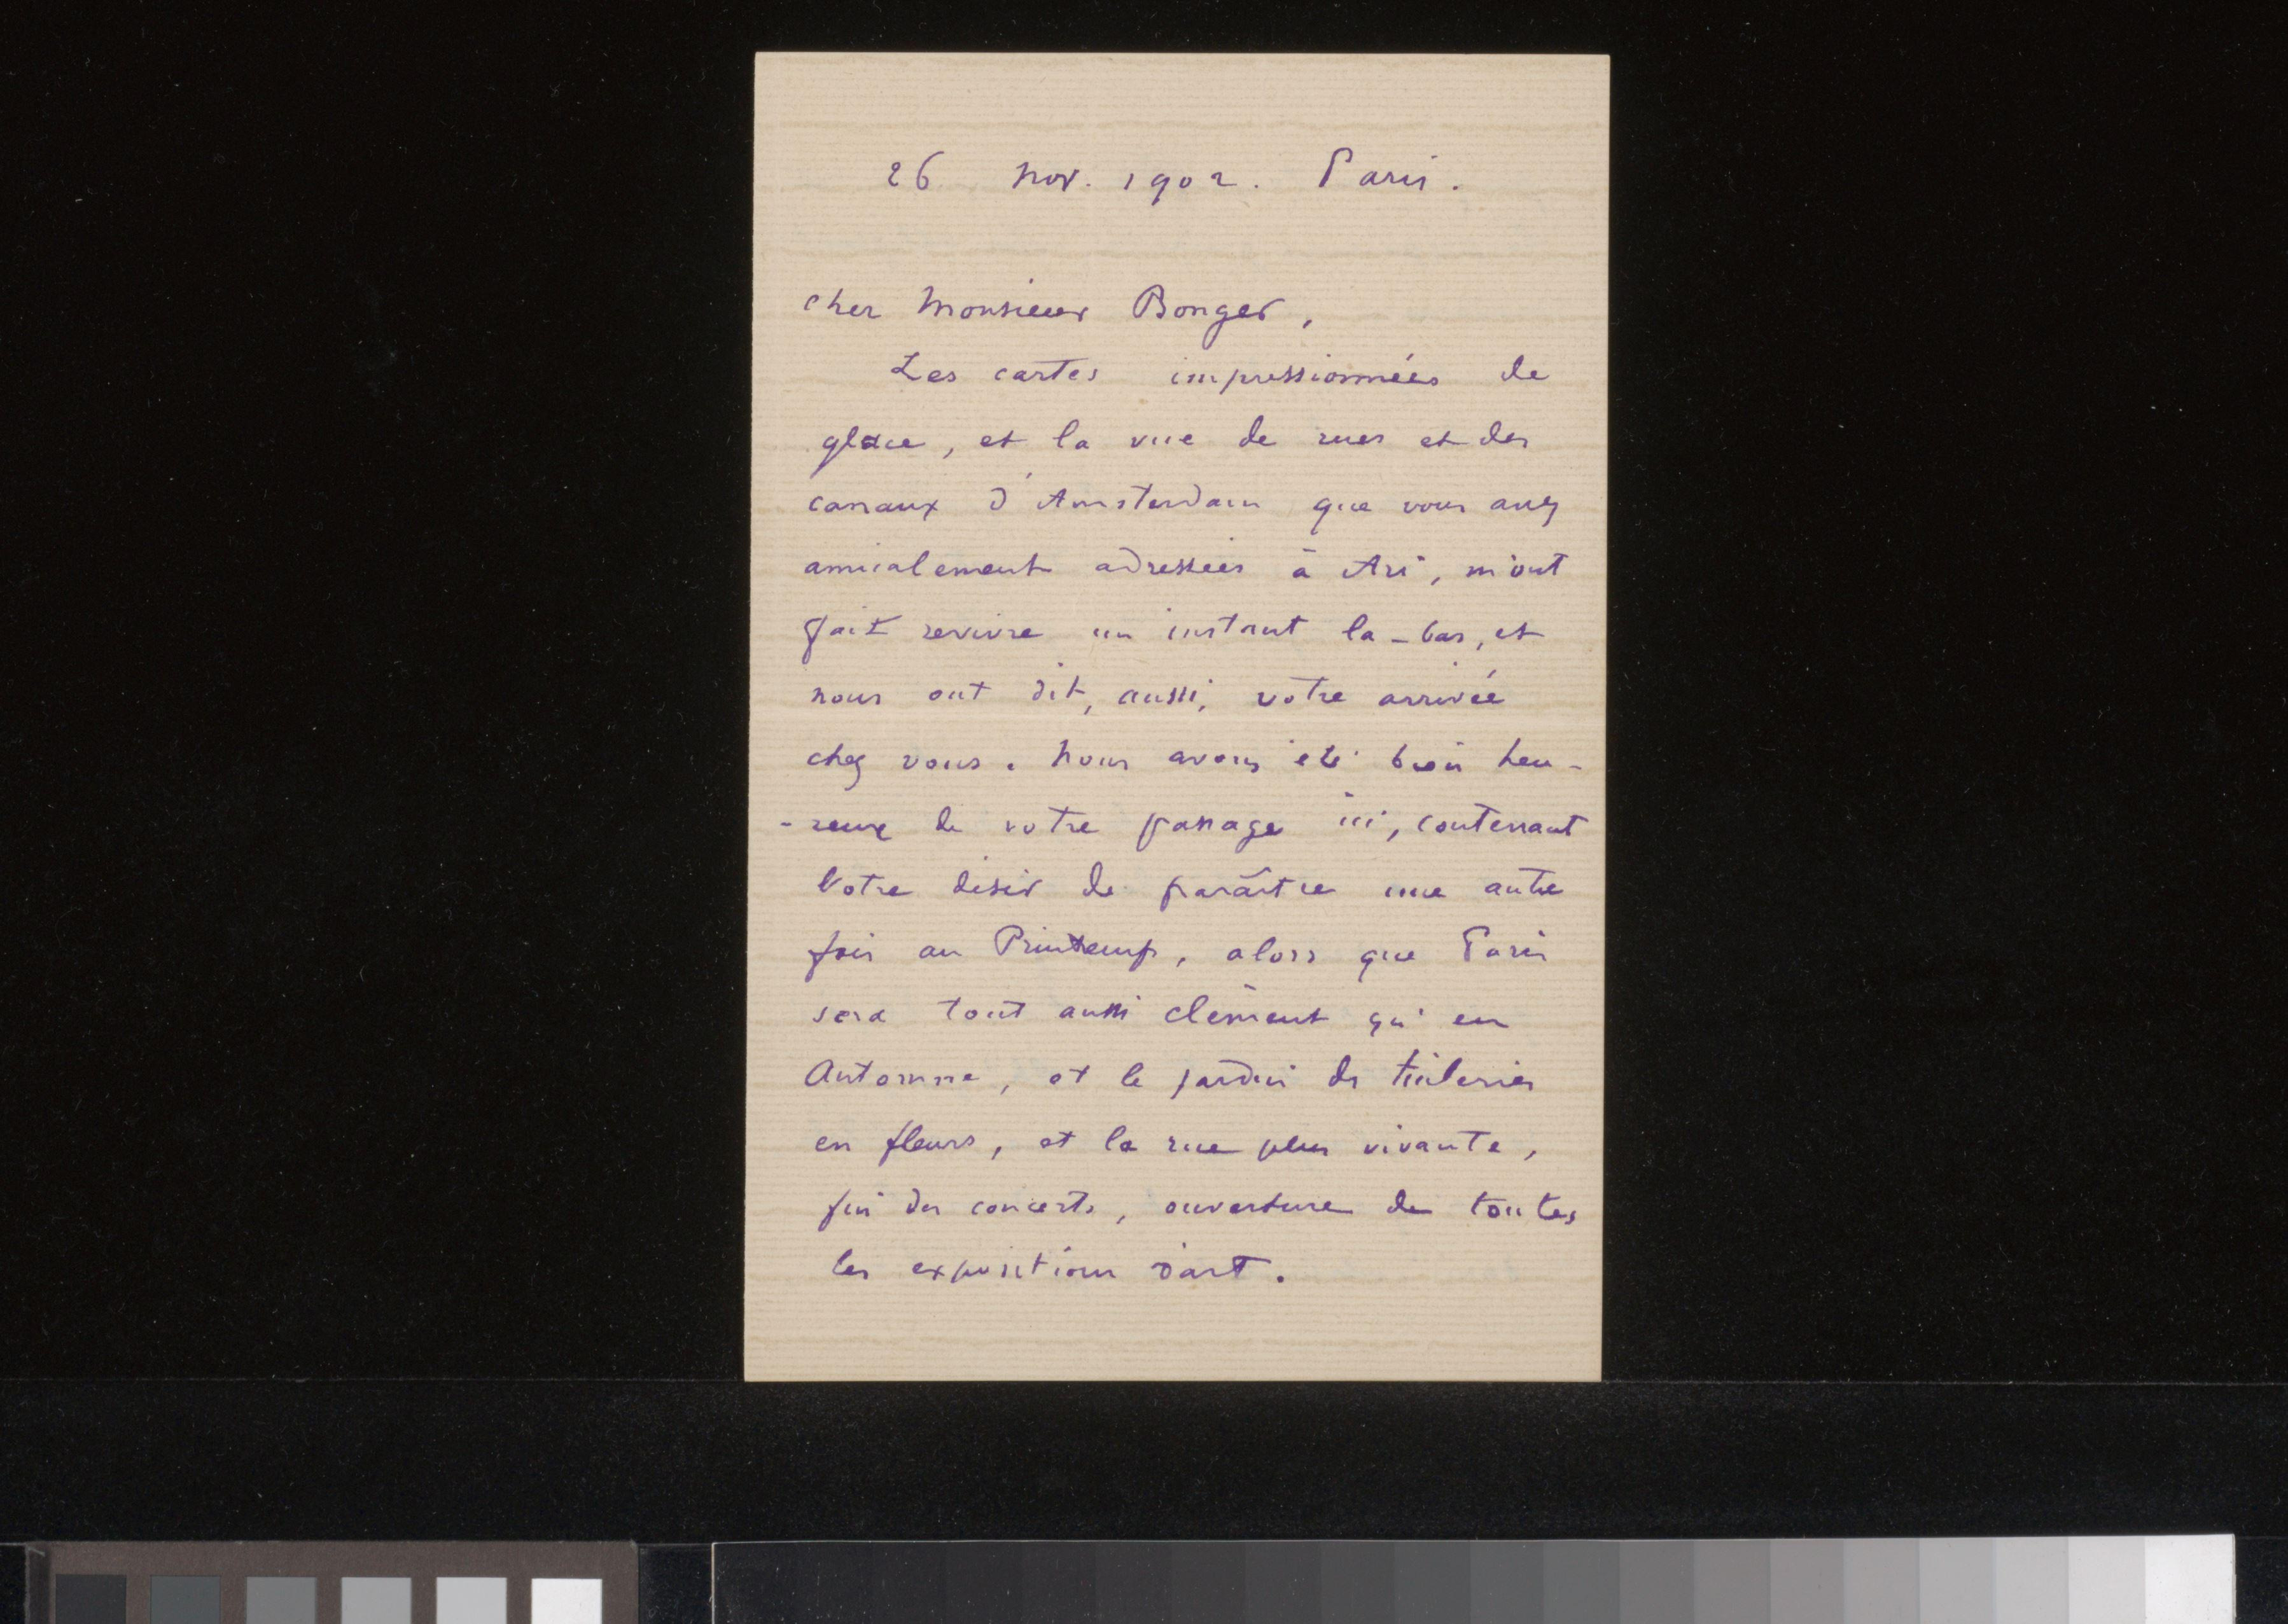 26 nov. 1902. Paris.
cher Monsieur Bonger,
Les cartes impressionnées de
glace, et la vue de rues et des
canaux d'Amsterdam que vous avez
amicalement adressées à Ari, m'ont
fait revivre un instant la-bas, et
nous ont dit, aussi, votre arrivée
chez vous. Nous avons été bien heu-
-reux de votre passage ici, contenant
votre désir de paraître une autre
fois au Printemps, alors que Paris
sera tout aussi clément qu'en
Automne, et le jardin des tuileries
en fleurs, et la rue plus vivante,
fin des concerts, ouverture de toutes
les expositions d'art.